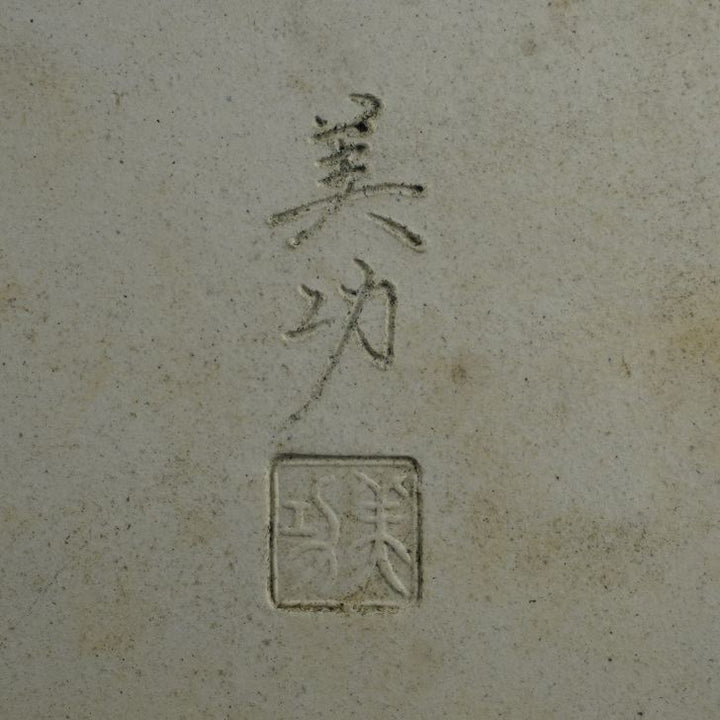 美功
美功